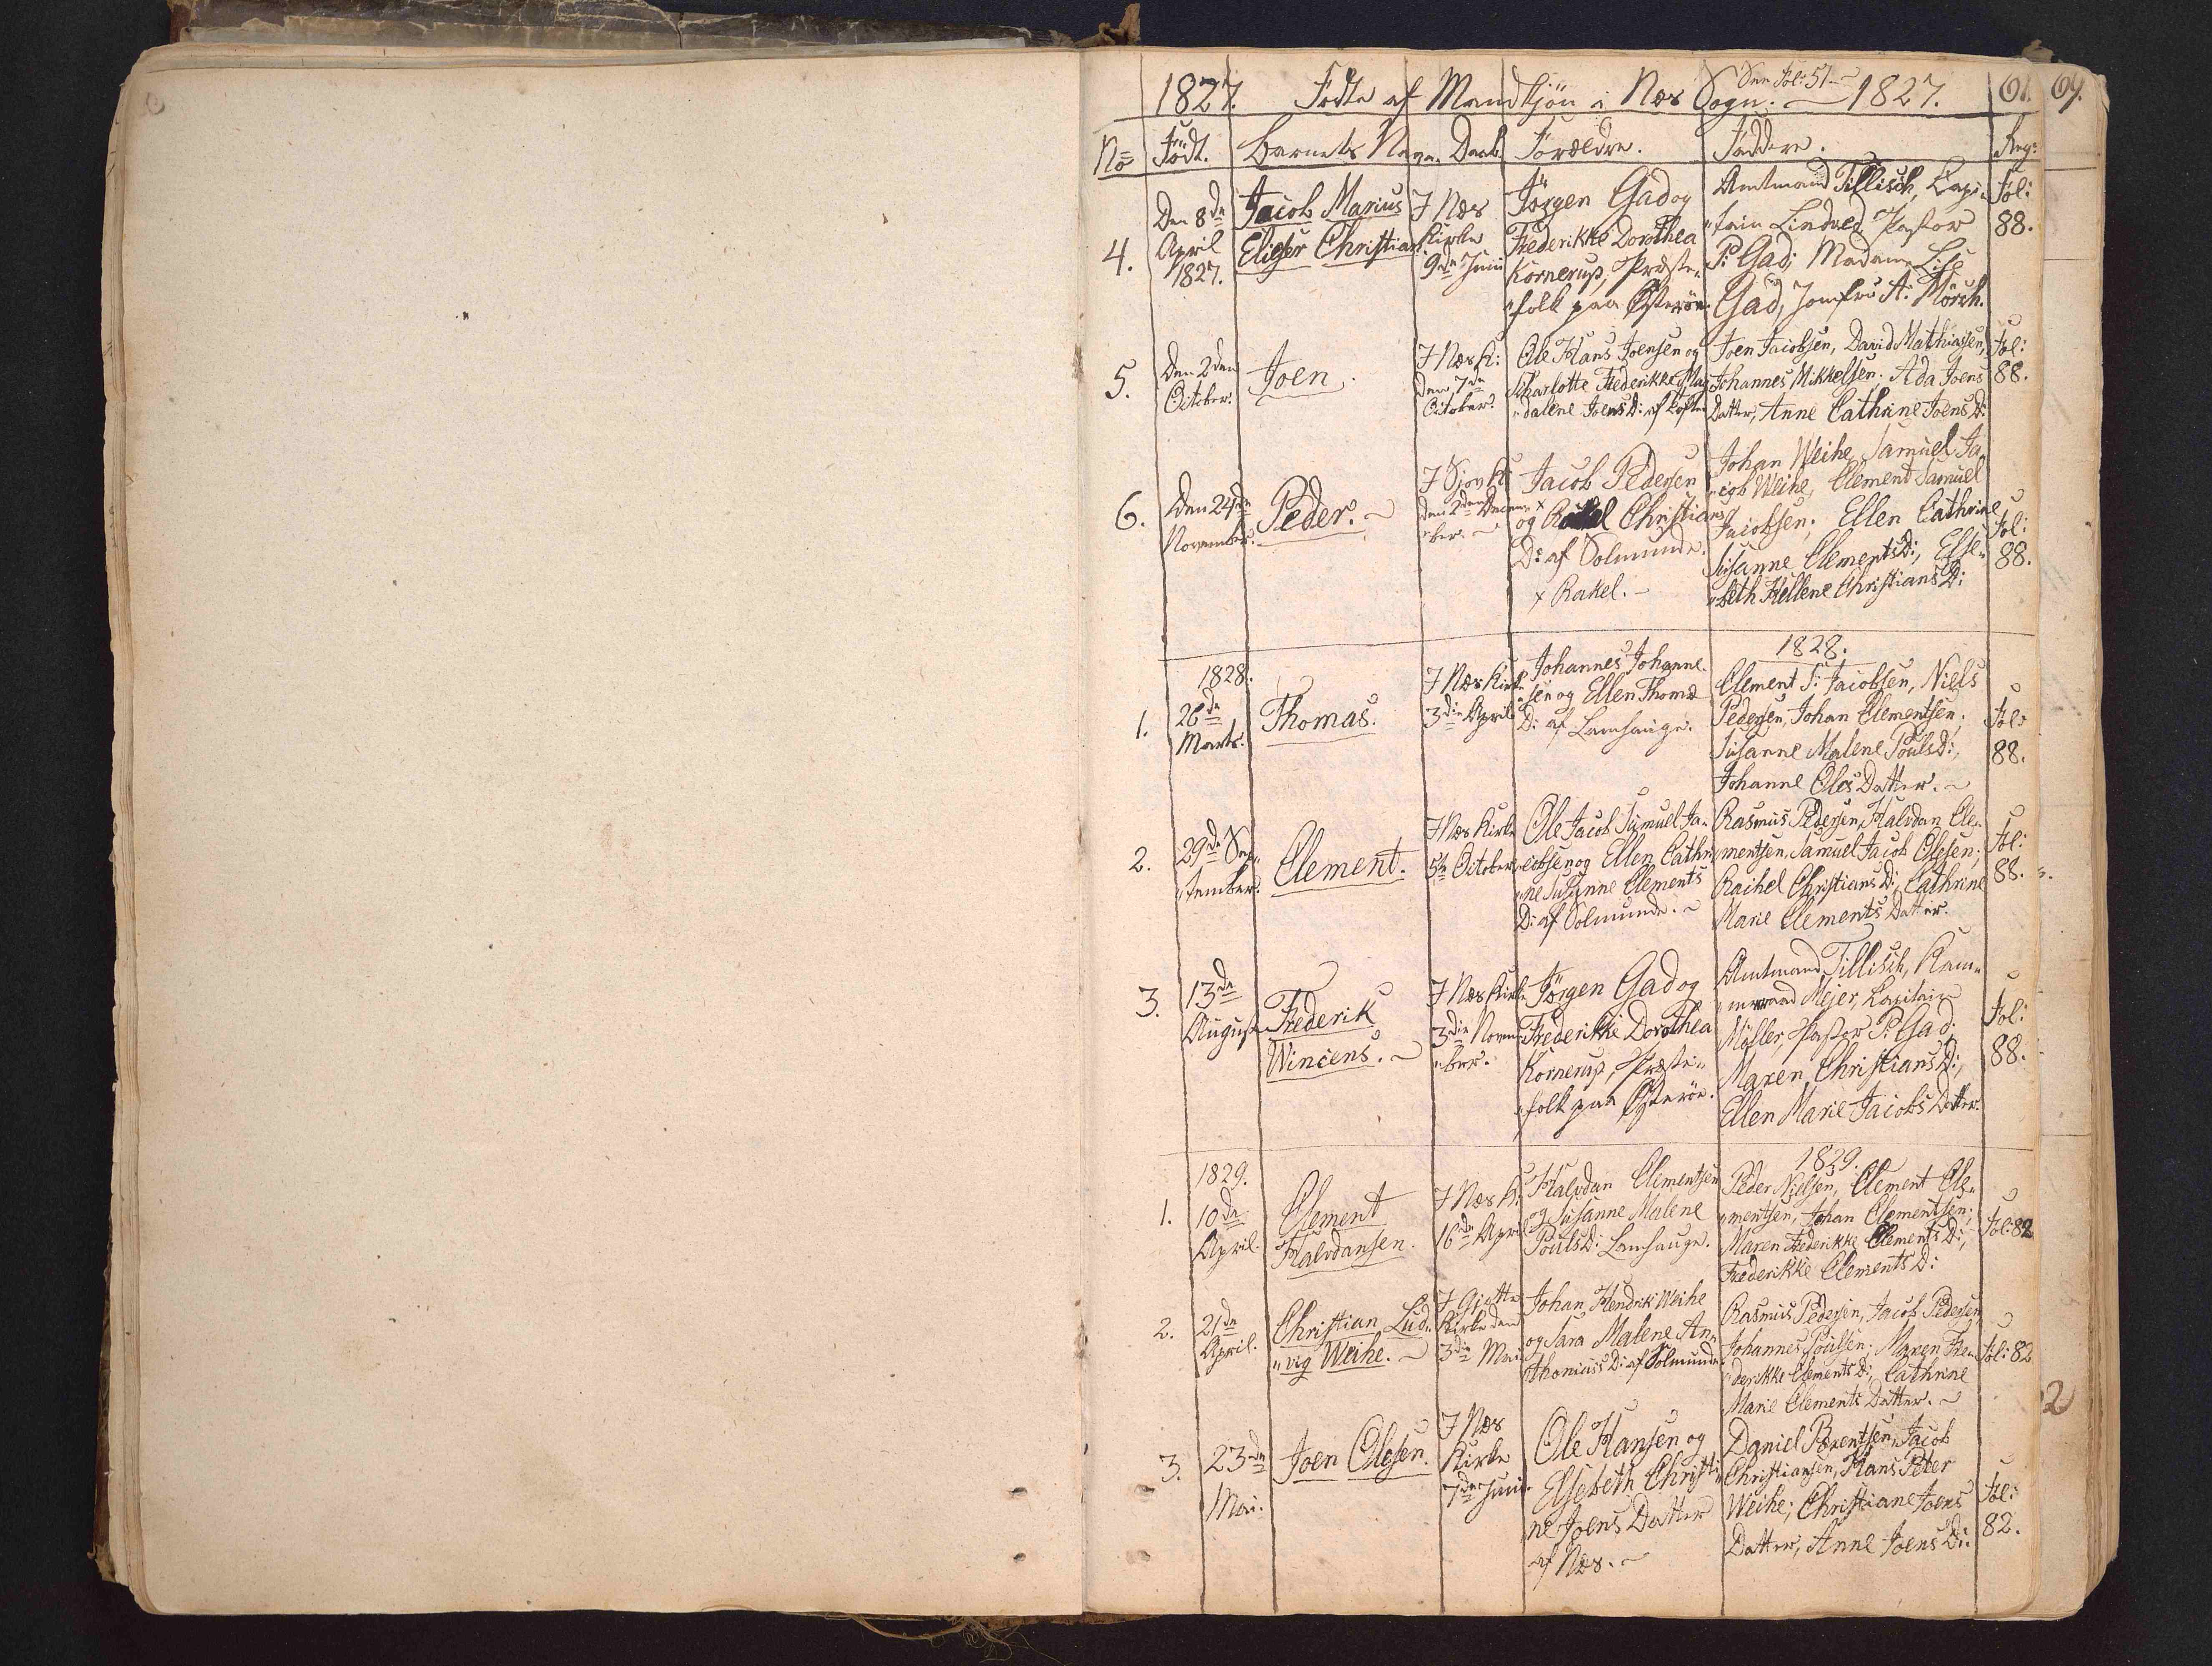 1827. Födte af Mandkjön i Næs Sogn. See Fol: 51 1827. 61. 69.
No Födt. Barnets Navn. Daab. Forældre. Faddere. Reg:
4.
Den 8de
April
1827.
Jacob Marius
Elieser Christian
I Næs
Kirke
9de Juni
Jörgen Gad og
Frederikke Dorothea
Kornerup, Præste-
folk paa Österöe.
Amtmand Tillisch, Capi-
tain Lindved, Pastor
P: Gad; Madame Lise
Gad, Jomfru A: Mörch.
Fol:
88.
5.
Den 2den
October.
Joen.
I Næs K:
den 7de
October.
Ole Hans Joensen og
Scharlotte Frederikke Mag
dalene Joens D: af
Joen Jacobsen, David Mathiassen,
Johannes Mikkelsen. Ada Joens
Datter, Anne Cathrine Joens D:
Fol:
88.
6.
Den 24de
November.
Peder.
I Siov K:
den 2den Decem-
ber.
Jacob Pedersen
og x Christians
D: af Solmunde.
x Rakel.
Johan Weihe, Samuel Ja-
cob Weihe, Clement Samuel
Jacobsen; Ellen Cathrine
Susanne Clements D:, Else-
beth Hellene Christians D:
Fol:
88.
1828. 1828.
1.
26de
Marts.
Thomas.
I Næs Kirke
3die April
Johannes Johanne-
sen og Ellen Thomæ
D: af Lamhauge.
Clement S: Jacobsen, Niels
Pedersen, Johan Clementsen;
Susanne Malene Pouls D:,
Johanne Oles Datter.
Fol:
88.
2.
29de Sep-
tember.
Clement.
I Næs Kirke
5te October
Ole Jacob Samuel Ja-
cobsen og Ellen Cathri-
ne Susanne Clements
D: af Solmunde.
Rasmus Pedersen, Halvdan Cle-
mentsen, Samuel Jacob Olesen;
Rachel Christians D:, Cathrine
Marie Clements Datter.
Fol:
88.
3.
13de
August
Frederik
Wincens.
I Næs Kirke
3die Novem-
ber.
Jörgen Gad og
Frederikke Dorothea
Kornerup, Præste-
folk paa Österöe.
Amtmand Tillisch, Kam-
merraad Mejer, Capitain
Möller, Pastor P: Gad;
Maren Christians D:,
Ellen Marie Jacobs Datter.
Fol:
88.
1829. 1829.
1.
10de
April.
Clement
Halvdansen.
I Næs K:
16de April
Halvdan Clementsen
og Susanne Malene
Pouls D: Lamhauge.
Peder Nielsen, Clement Cle-
mentsen, Johan Clementsen;
Maren Frederikke Clements D:,
Frederikke Clements D:
Fol: 82
2.
21de
April.
Christian Lud-
vig Weihe.
I Gjötte
Kirke den
3die Mai
Johan Hendrik Weihe
og Sara Malene An-
thonius D: af Solmunde
Rasmus Pedersen, Jacob Pedersen,
Johannes Poulsen; Maren Fre-
derikke Clements D:, Cathrine
Marie Clements Datter.
Fol: 82
3.
23de
Mai.
Joen Olesen.
I Næs
Kirke
7de Juni.
Ole Hansen og
Elsebeth Christi-
ne Joens Datter
af Næs.
Daniel Berentsen, Jacob
Christiansen, Hans Peter
Weihe; Christiane Joens
Datter, Anne Joens D:
Fol:
82.
2